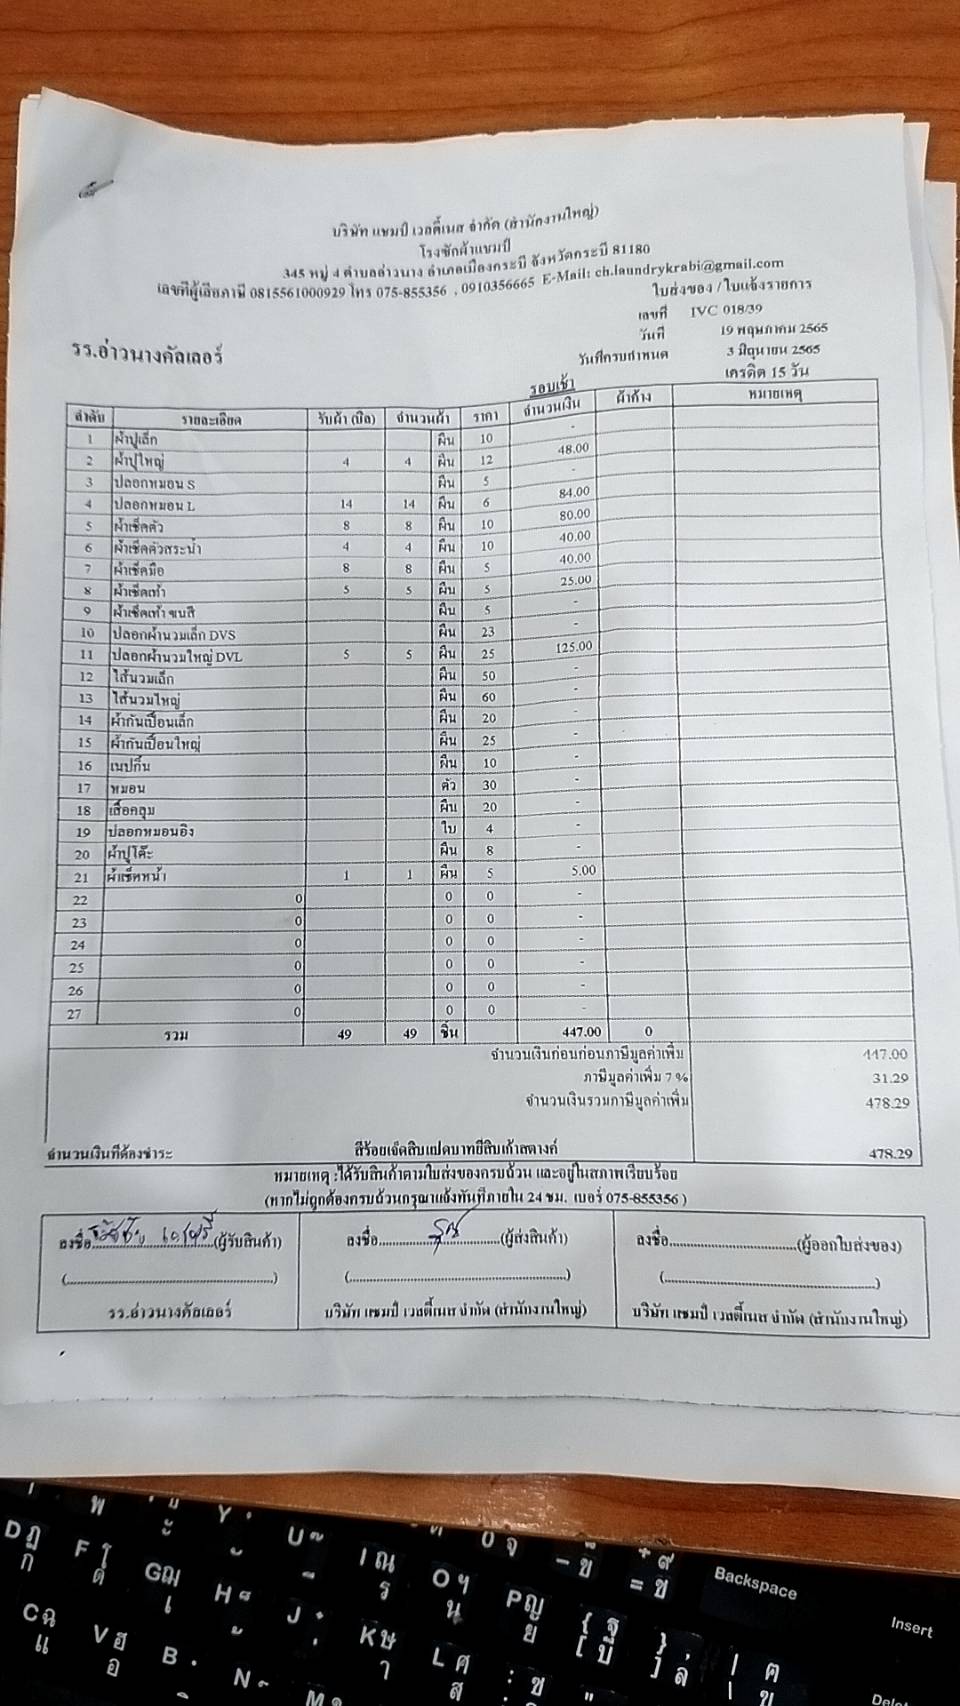 บริษัท แชมป์ เวลตี้เนส จำกัด (สำนักงานใหญ่)
โรงซักผ้าแชมป์
345 หมู่ 4 ตำบลอ่าวนาง อำเภอเมืองกระบี่ จังหวัดกระบี่ 81180
เลขที่ผู้เสียภาษี 0815561000929 โทร 075-855356 , 0910356665 E-Mail: ch.laundrykrabi@gmail.com
ใบส่งของ / ใบแจ้งรายการ
เลขที่ IVC 018/39
วันที่ 19 พฤษภาคม 2565
รร.อ่าวนางคัลเลอร์ วันที่ครบกำหนด 3 มิถุนายน 2565
เครดิต 15 วัน
รอบเช้า
ลำดับ รายละเอียด รับผ้า (บิล) จำนวนผ้า ราคา จำนวนเงิน ผ้าค้าง หมายเหตุ
1 ผ้าปูเล็ก ผืน 10 -
2 ผ้าปูใหญ่ 4 4 ผืน 12 48.00
3 ปลอกหมอน S ผืน 5 -
4 ปลอกหมอน L 14 14 ผืน 6 84.00
5 ผ้าเช็ดตัว 8 8 ผืน 10 80.00
6 ผ้าเช็ดตัวสระน้ำ 4 4 ผืน 10 40.00
7 ผ้าเช็ดมือ 8 8 ผืน 5 40.00
8 ผ้าเช็ดเท้า 5 5 ผืน 5 25.00
9 ผ้าเช็ดเท้า ขนสี ผืน 5 -
10 ปลอกผ้านวมเล็ก DVS ผืน 23 -
11 ปลอกผ้านวมใหญ่ DVL 5 5 ผืน 25 125.00
12 ไส้นวมเล็ก ผืน 50 -
13 ไส้นวมใหญ่ ผืน 60 -
14 ผ้ากันเปื้อนเล็ก ผืน 20 -
15 ผ้ากันเปื้อนใหญ่ ผืน 25 -
16 เนปกิ้น ผืน 10 -
17 หมอน ตัว 30 -
18 เสื้อคลุม ผืน 20 -
19 ปลอกหมอนอิง ใบ 4 -
20 ผ้าปูโต๊ะ ผืน 8 -
21 ผ้าเช็ดหน้า 1 1 ผืน 5 5.00
22 0 0 0 -
23 0 0 0 -
24 0 0 0 -
25 0 0 0 -
26 0 0 0 -
27 0 0 0 -
รวม 49 49 ชิ้น 447.00 0
จำนวนเงินก่อนก่อนภาษีมูลค่าเพิ่ม 447.00
ภาษีมูลค่าเพิ่ม 7 % 31.29
จำนวนเงินรวมภาษีมูลค่าเพิ่ม 478.29
จำนวนเงินที่ต้องชำระ สี่ร้อยเจ็ดสิบแปดบาทยี่สิบเก้าสตางค์ 478.29
หมายเหตุ :ได้รับสินค้าตามใบส่งของครบถ้วน และอยู่ในสภาพเรียบร้อย
(หากไม่ถูกต้องครบถ้วนกรุณาแจ้งทันทีภายใน 24 ชม. เบอร์ 075-855356 )
ลงชื่อ (ผู้รับสินค้า) ลงชื่อ (ผู้ส่งสินค้า) ลงชื่อ (ผู้ออกใบส่งของ)
รร.อ่าวนางคัลเลอร์ บริษัท แชมป์ เวลตี้เนส จำกัด (สำนักงานใหญ่) บริษัท แชมป์ เวลตี้เนส จำกัด (สำนักงานใหญ่)
Backspace
Insert